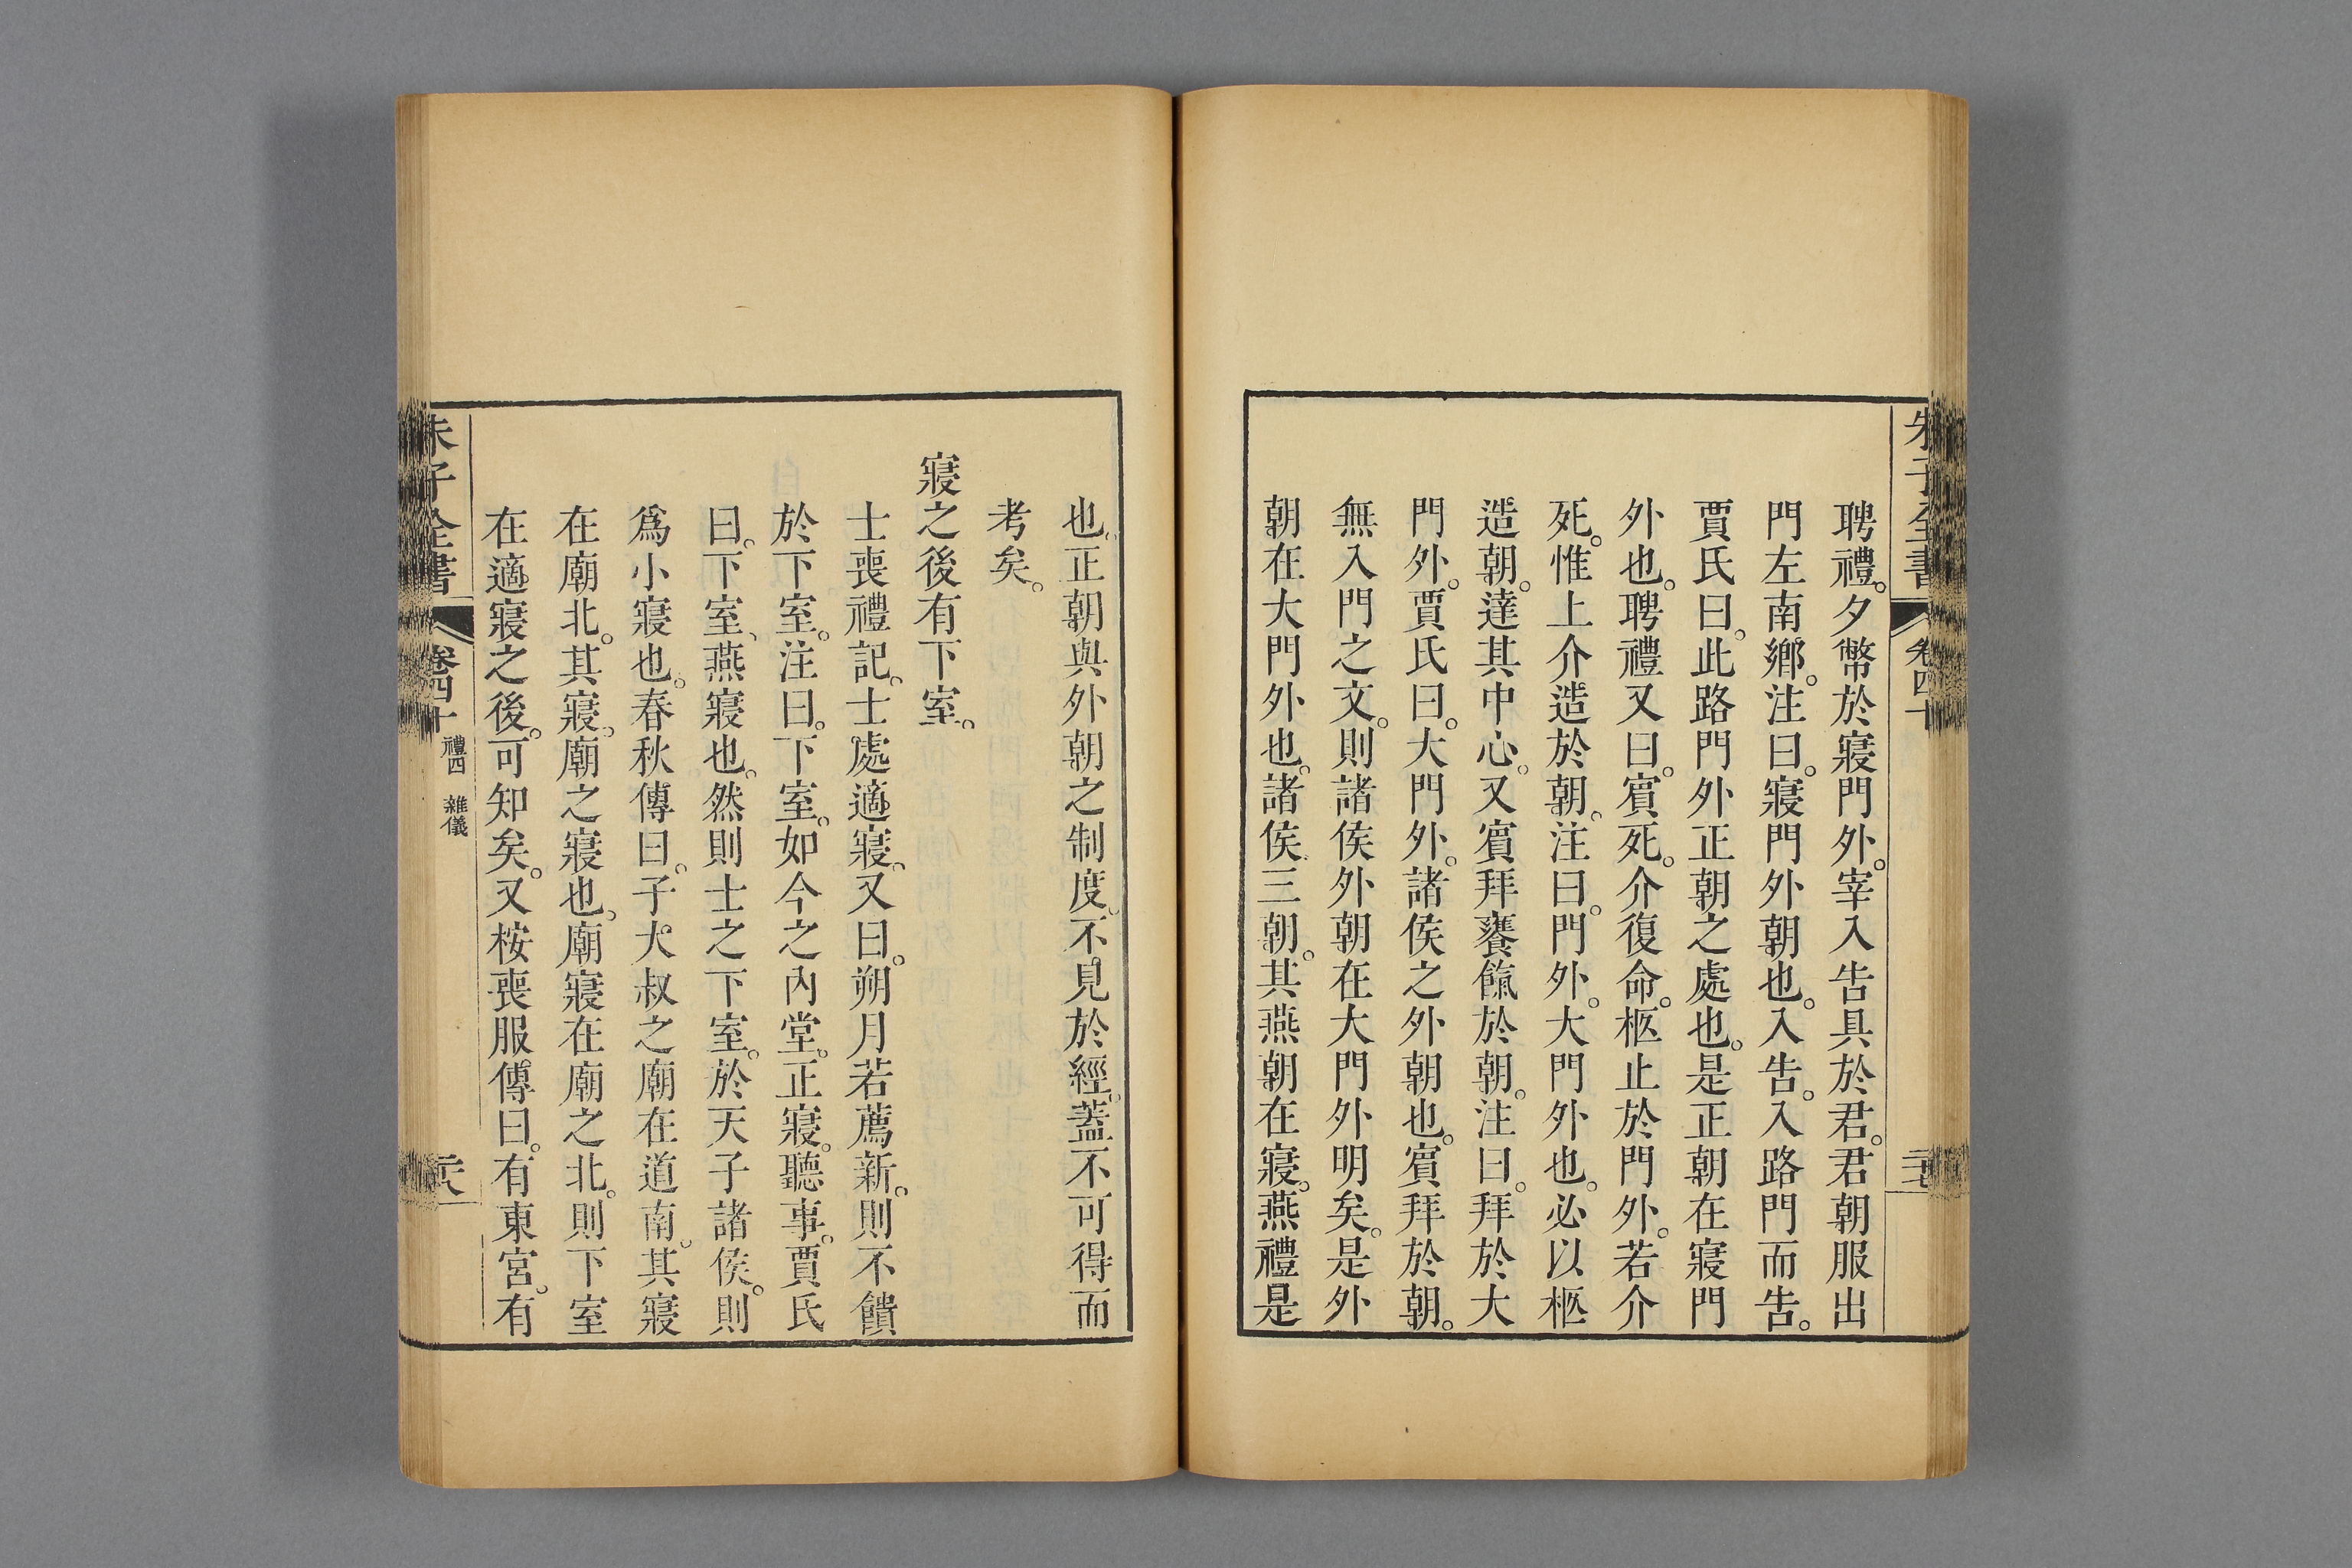 朱子全書 卷四十
聘禮。夕幣於寢門外。宰入告具於君。君朝服出
門左南鄉。注曰。寢門外朝也。入告。入路門而告。
賈氏曰。此路門外正朝之處也。是正朝在寢門
外也。聘禮又曰。賓死。介復命。柩止於門外。若介
死。惟上介造於朝。注曰。門外。大門外也。必以柩
造朝。達其中心。又賓拜饔餼於朝。注曰。拜於大
門外。賈氏曰。大門外。諸侯之外朝也。賓拜於朝。
無入門之文。則諸侯外朝在大門外明矣。是外
朝在大門外也。諸侯三朝。其燕朝在寢。燕禮是
也。正朝與外朝之制度。不見於經。蓋不可得而
考矣。
寢之後有下室。
士喪禮記。士處適寢。又曰。朔月若薦新。則不饋
於下室。注曰。下室。如今之內堂。正寢。聽事。賈氏
曰。下室、燕寢也。然則士之下室。於天子諸侯。則
爲小寢也。春秋傳曰。子大叔之廟在道南。其寢
在廟北。其寢。廟之寢也。廟寢在廟之北。則下室
在適寢之後。可知矣。又桉喪服傳曰。有東宮。有
朱子全書 卷四十 禮四 雜儀